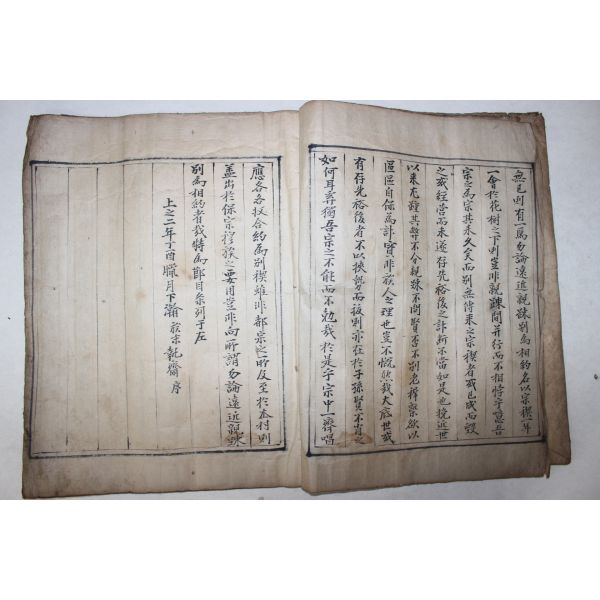 無已則有一焉勿論遠近親疎別爲相約名以宗稧一年
一會於花樹之下則豈非親疎間并行而不相悖字噫吾
宗之爲宗其來久矣而別無傳來之宗稧者或已成而毁
之或經營而未遂存先裕後之計所不當如是也挽近世
以來尤種其弊不分親疎不問賢否不別老稚衆欲以
區區自保爲計實非族人之理也豈不慨然哉大底世或
有存先裕後者不以挾勢而後則亦在於子孫賢不肖之
如何耳葬獨吾宗之不能而不勉哉於是乎宗中一齊唱
應各各收合約爲別稧雖非都宗之所及至於本村則
盖出於保宗穆族之要用豈非向所謂勿論遠近親疎
別爲相約者哉特爲節目条列于左
上之二年丁酉臘月下瀚 族末 乾齋 序